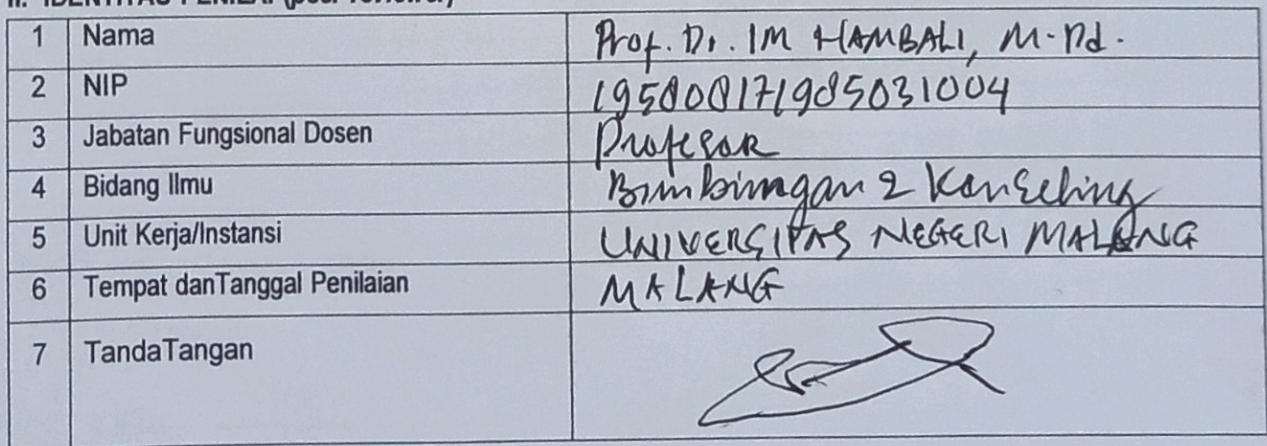 II. IDENTITAS PENILAI (peer reviewer)
1 Nama Prof. Dr. IM HAMBALI, M.Pd.
2 NIP 195808171985031004
3 Jabatan Fungsional Dosen Profesor
4 Bidang Ilmu Bimbingan & Konseling
5 Unit Kerja/Instansi UNIVERSITAS NEGERI MALANG
6 Tempat danTanggal Penilaian MALANG
7 TandaTangan